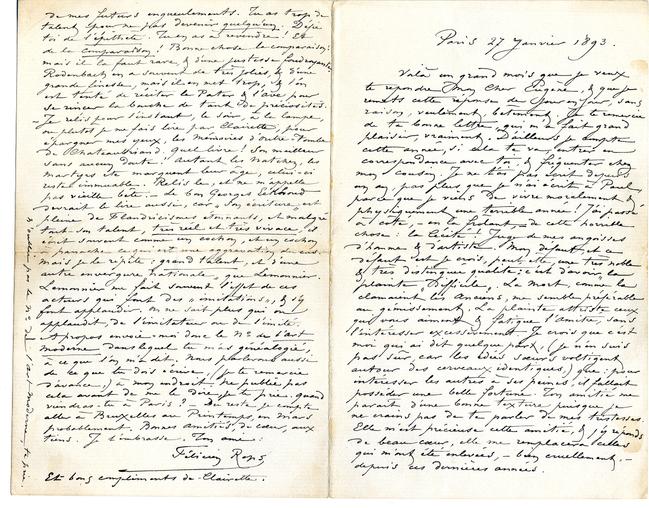 Paris 27 Janvier 1893.
Voilà un grand mois que je veux
te répondre mon cher Eugène, & que je
remets cette réponse de jour en jour, sans
raison, veulement, bêtement. Je te remercie
de ta bonne lettre, qui m'a fait grand
plaisir, vraiment. D'ailleurs je compte
cette année, si cela te va, entrer en
correspondance avec toi, & fréquenter chez
mon cousin. Je ne t'ai pas écrit depuis
un an, pas plus que je n'ai écrit à Paul,
parce que je viens de vivre moralement &
physiquement une terrible année! J'ai passé
à côté, en la frôlant, de cette horrible
chose: la Cécité. Juge de mes angoisses
d'homme & d'artiste. Mon défaut, et ce
défaut est je crois, peut être une très noble
& très distinguée qualité, c'est d'avoir la
plainte difficile. La mort, comme la
clamaient les Anciens, me semble préférable
au gémissement. La plainte attriste ceux
qui vous aiment & fatigue l'Amitié, sans
l'intéresser excessivement. Je crois que c'est
moi qui ai dit quelque part, (je n'en suis
pas sûr, car les idées sœurs voltigent
autour des cerveaux identiques,) que: pour
intéresser les autres à ses peines, il fallait
posséder une belle fortune. Ton amitié me
paraît d'une bonne texture puisque je
ne crains pas de te parler de mes tristesses.
Elle m'est précieuse cette amitié, & j'y réponds
de beau cœur, elle me remplacera celles
qui m'ont été enlevées, – bien cruellement, –
depuis ces dernières années.
de mes futurs engueulements. Tu as trop de
talent pour ne pas devenir quelqu'un. Défie
toi de l'épithète. Tu en as à revendre! Et
de la comparaison! Bonne chose la comparaison:
mais il la faut rare, & d'une justesse foudroyante.
Rodenbach en a trouvé de très jolies, & d'une
grande finesse, mais il en met trop, & l'on
est tenté de réciter le Pater & l'Ave pour
se rincer la bouche de tant de préciosités.
– Je relis pour l'instant, le soir, à la lampe,
ou plutôt je me fais lire par Clairette, pour
épargner mes yeux, les Mémoires d'outre-tombe
de Chateaubriand. Quel livre! Son meilleur
sans aucun doute! Autant les Natchez, les
martyrs etc marquent leur âge, celui-ci
reste immuable. Relis le, et ne m'appelle
pas vieille bête. – Le bon Georges Eekhoud
devrait le lire aussi, car son écriture est
pleine de Flandricismes étonnants, et malgré
tout son talent, très réel et très vivace, il
écrit souvent comme un cochon, et un cochon
à panache ce qui est une aggravation de cas.
Mais je le répète: grand talent, et d'une
autre envergure nationale, que Lemonnier.
Lemonnier me fait souvent l'effet de ces
acteurs qui font des « imitations », & s'y
font applaudir. On ne sait plus qui on
applaudit, de l'imitateur ou de l'imité.
A propos envoie-moi donc le No de l'art
moderne dans lequel tu m'as généalogié,
à ce que l'on m'a dit. Nous parlerons aussi
de ce que tu dois écrire, (je te remercie
d'avance,) à mon endroit. Ne publie pas
cela avant de me le dire, je te prie. Quand
viendras-tu à Paris? De reste je compte
aller à Bruxelles au Printemps, en Mars
probablement. Bonnes amitiés, de cœur, aux
tiens. Je t'embrasse. Ton ami:
Félicien Rops
Et bons compliments de Clairette.
N'oublie pas le No de l'art Moderne, te prie.